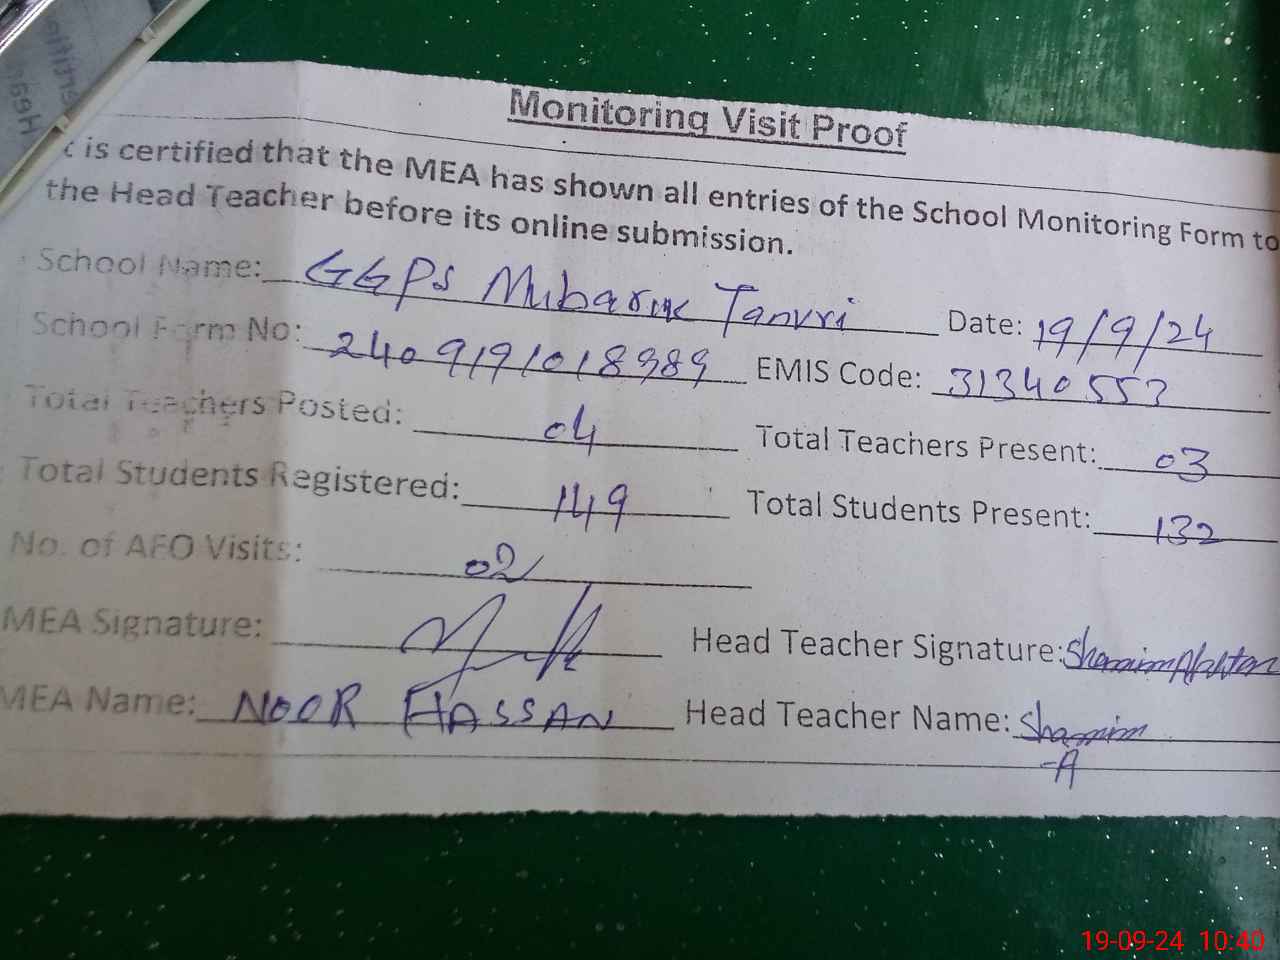 Monitoring Visit Proof
t is certified that the MEA has shown all entries of the School Monitoring Form to
the Head Teacher before its online submission.
School Name: GGPS Mubarak Tanvri Date: 19/9/24
School Form No: 2409191018989 EMIS Code: 31340553
Total Teachers Posted: 04 Total Teachers Present: 03
Total Students Registered: 149 Total Students Present: 132
No. of AEO Visits: 02
MEA Signature: Head Teacher Signature: Shamim Akhtar
MEA Name: NOOR HASSAN Head Teacher Name: Shamim
-A
19-09-24 10:40